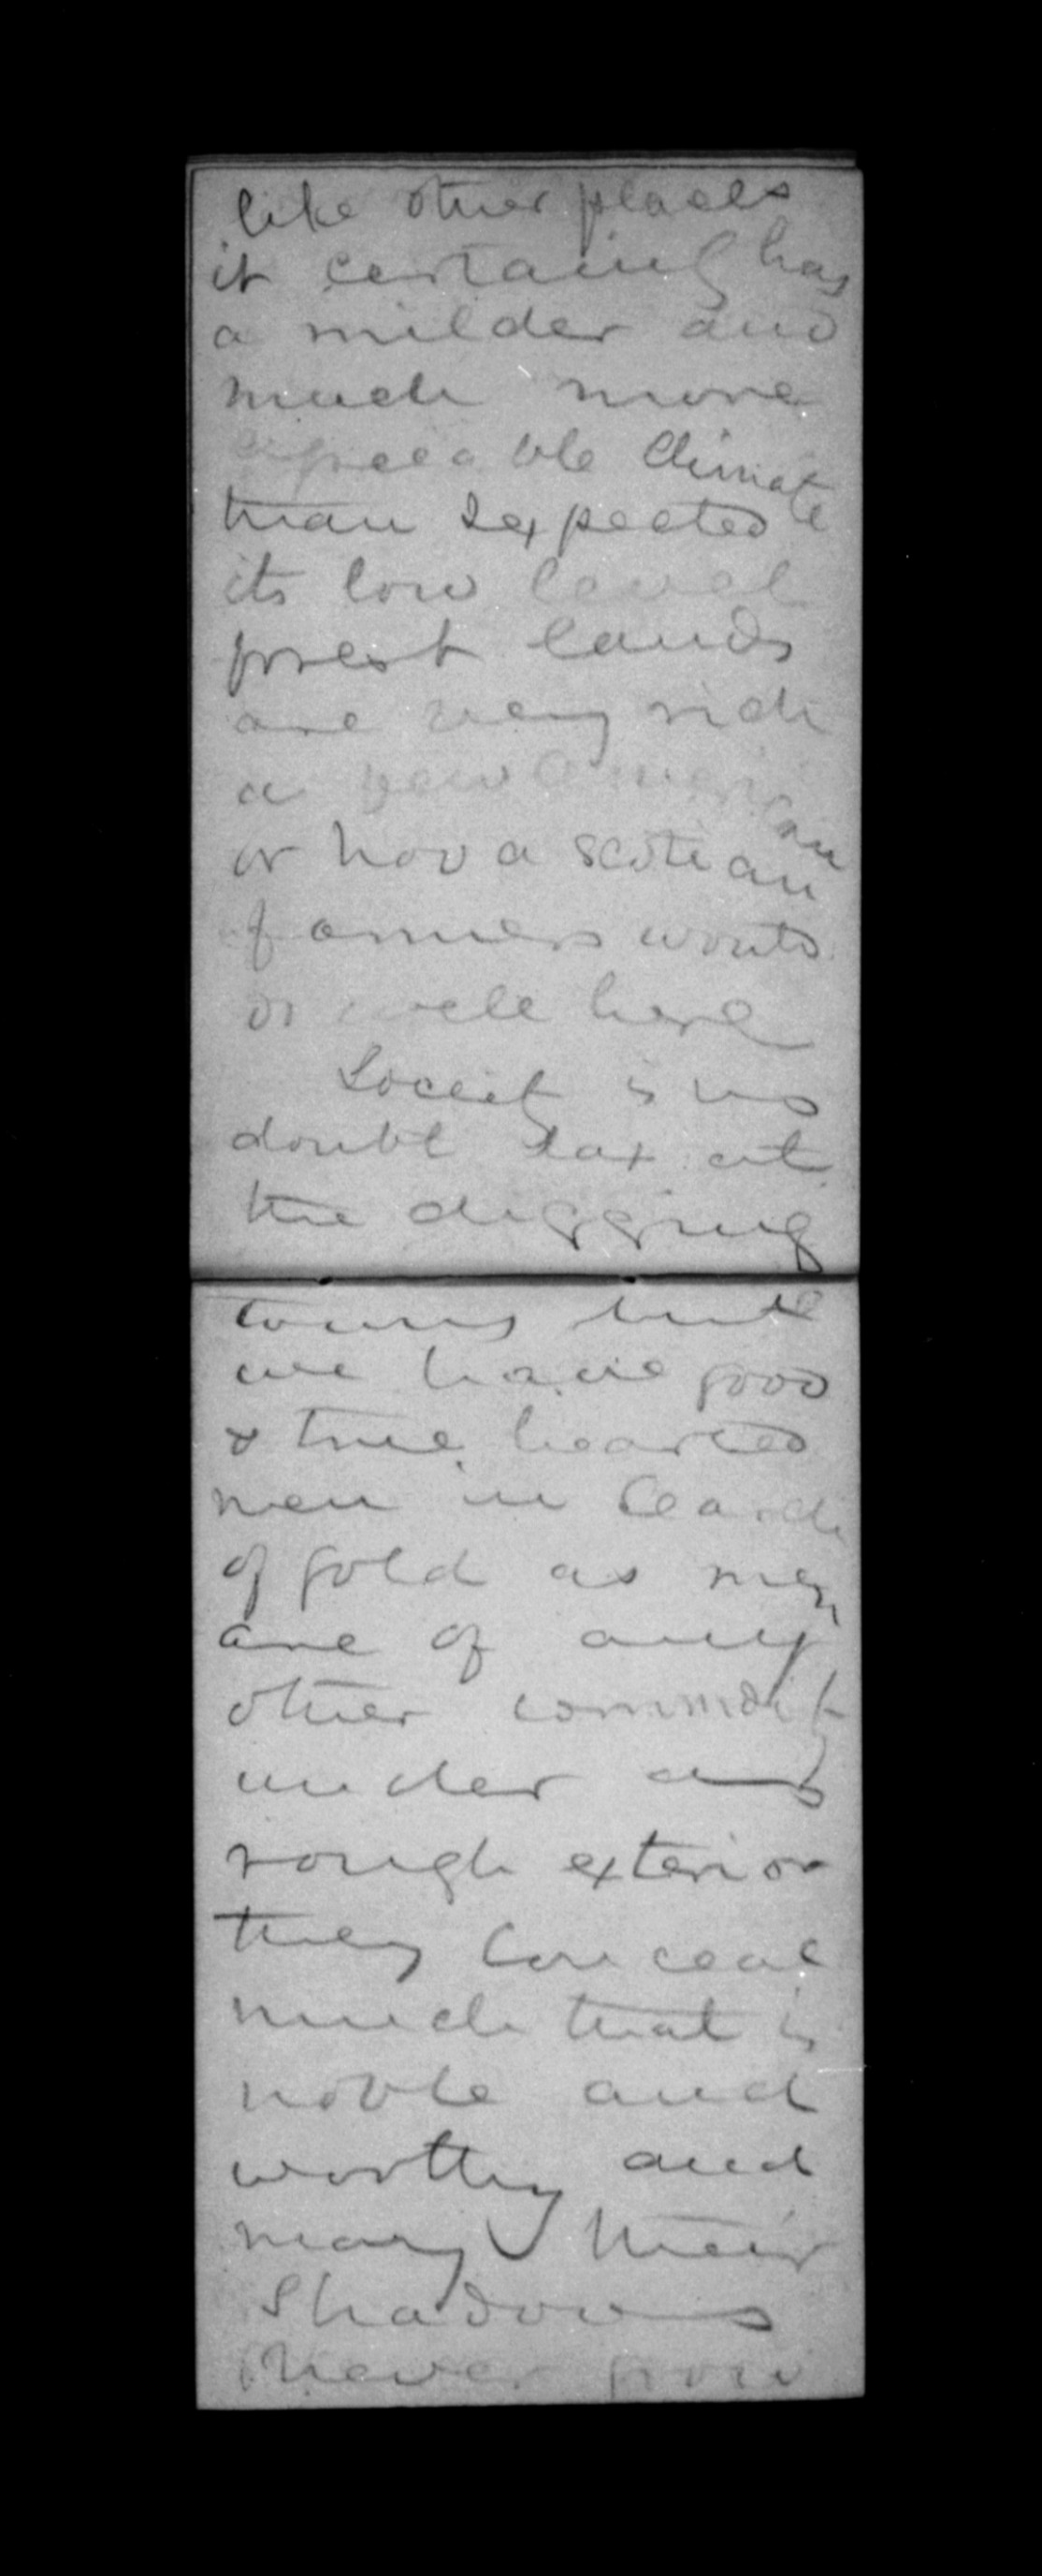 like other places
it certainly has
a milder and
much more
agreeable Climate
than I expected
its low level
forest lands
are very rich
a new American
or nova scotian
farmers would
do well here
Society is no
doubt lax at
the digging
towns but
we have good
& true hearted
men in search
of gold as men
are of any
other commodity
under a
rough exterior
they conceal
much that is
noble and
worthy and
may their
Shadows
never grow